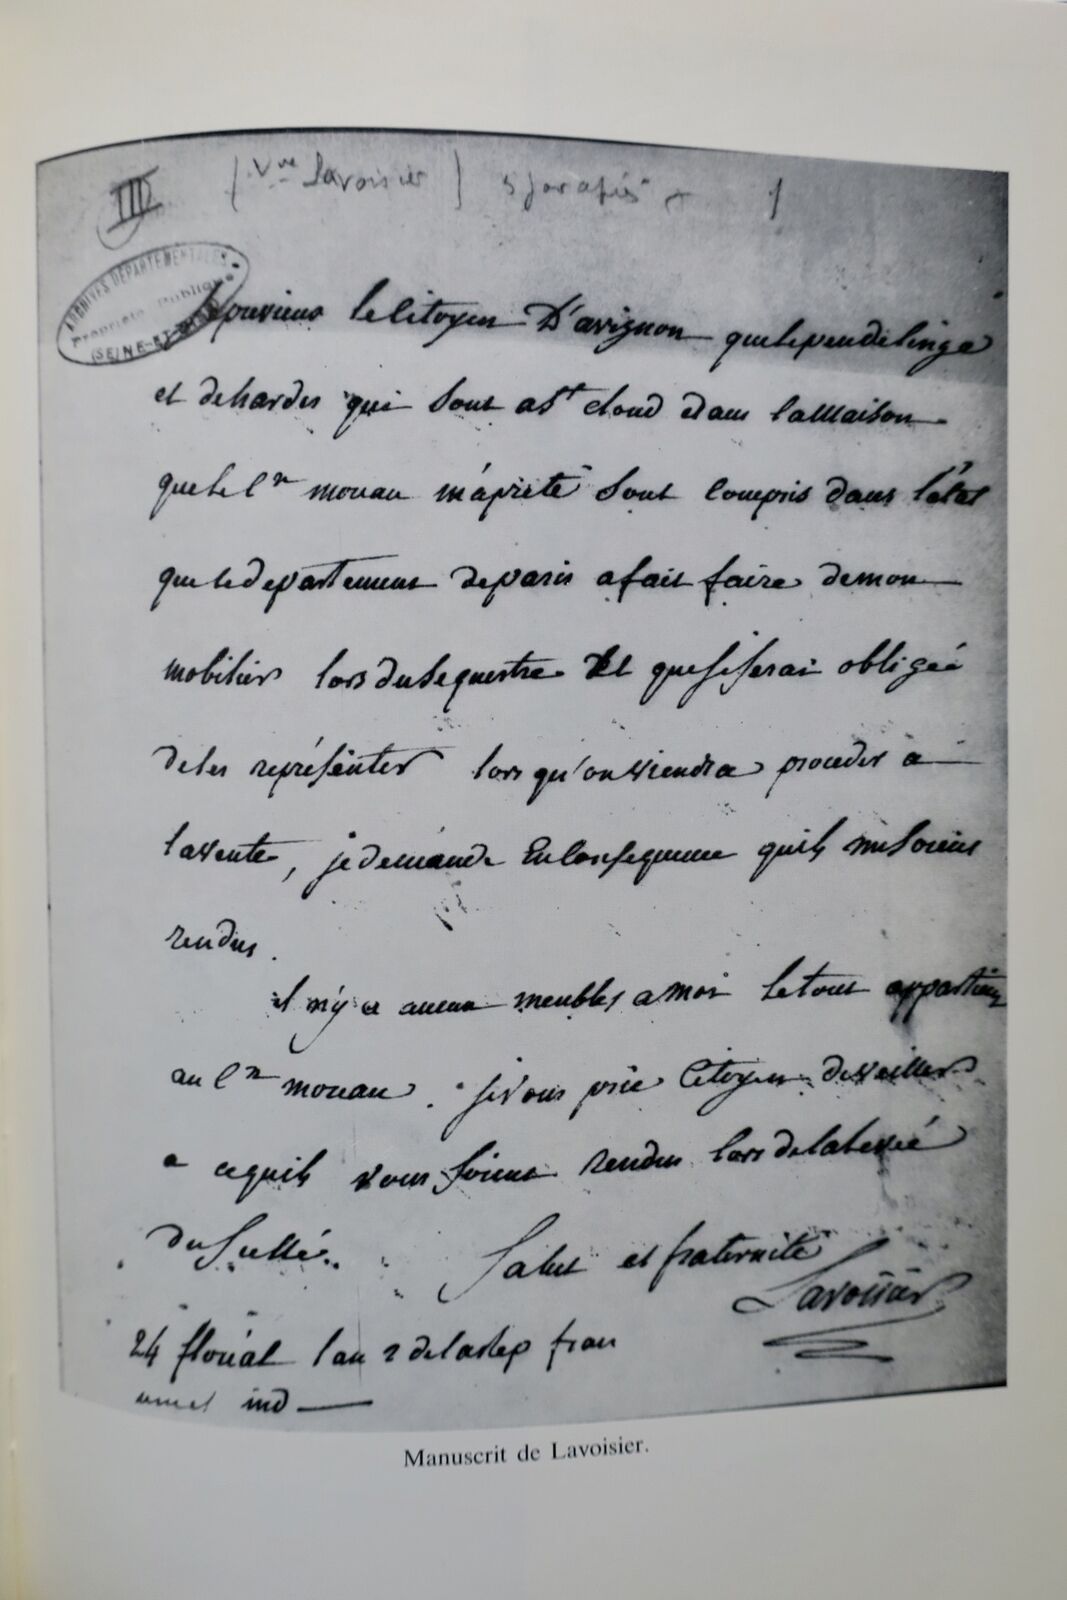 III (Vve Lavoisier) 1
ARCHIVES DÉPARTEMENTALES
Propriété Publique
(SEINE-ET-
le Citoyen D'avignon que le peu de linge
et de hardes qui sont a St cloud dans la Maison
que le Cn mouau m'a preté sont compris dans l'état
que le departement de paris a fait faire de mon
mobilier lors du sequestre Et que je serai obligée
de les représenter lors qu'on viendra proceder a
la vente, je demande En Conséquence quils me soient
rendus.
il n'y a aucun meubles a moi le tout appartient
au Cn mouau. je vous prie Citoyen de veiller
a ce quils vous soient rendus lors de la levée
du Scellé. Salut et fraternité
Lavoisier
24 floréal l'an 2 de la rep fran
une et ind
Manuscrit de Lavoisier.